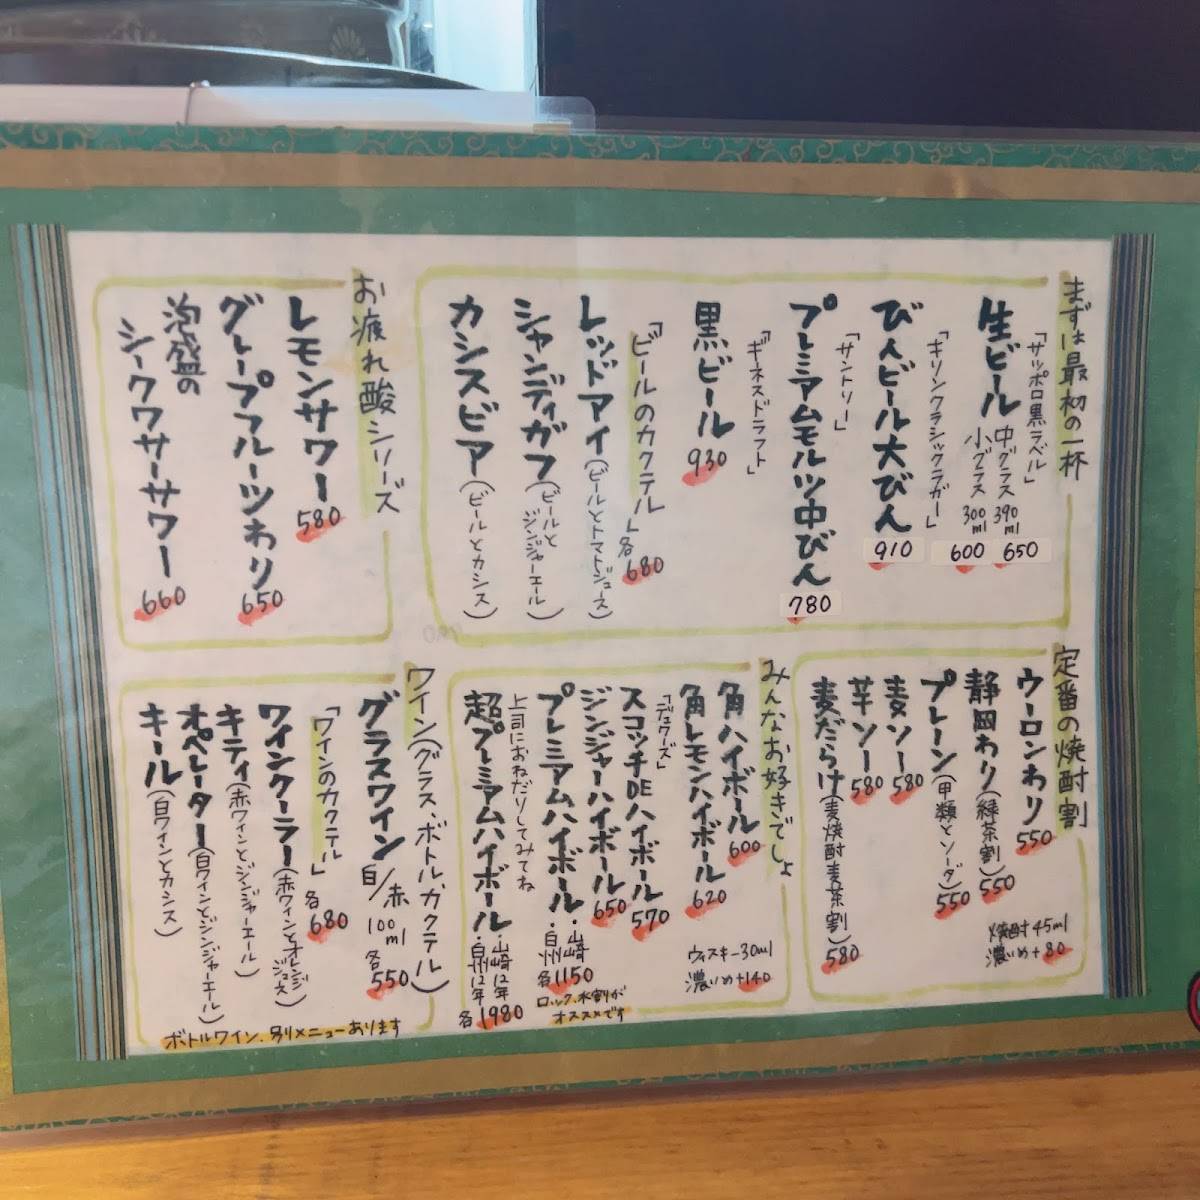 まずは最初の一杯
「サッポロ黒ラベル」
生ビール 中グラス 390ml 650
小グラス 300ml 600
「キリンクラシックラガー」
びんビール大びん 910
「サントリー」
プレミアムモルツ中びん 780
「ギネスドラフト」
黒ビール 930
「ビールのカクテル」各680
レッドアイ(ビールとトマトジュース)
シャンディガフ(ビールとジンジャーエール)
カシスビア(ビールとカシス)
お疲れ酸シリーズ
レモンサワー 580
グレープフルーツわり 650
泡盛の
シークワサーサワー 660
定番の焼酎割
ウーロンわり 550
静岡わり(緑茶割) 550
プレーン(甲類とソーダ) 550
麦ソー 580
芋ソー 580
麦だらけ(麦焼酎麦茶割) 580
焼酎45ml
濃いめ+80
みんなお好きでしょ
角ハイボール 600
角レモンハイボール 620
「デュワーズ」
スコッチDEハイボール 570
ジンジャーハイボール 650
プレミアムハイボール・山崎・白州 各1150
上司におねだりしてみてね
超プレミアムハイボール・山崎12年・白州12年 各1980
ウィスキー30ml
濃いめ+140
ロック、水割りが
オススメです
ワイン(グラス、ボトル、カクテル)
グラスワイン 白/赤 100ml 各550
「ワインのカクテル」各680
ワインクーラー(赤ワインとオレンジジュース)
キティ(赤ワインとジンジャーエール)
オペレーター(白ワインとジンジャーエール)
キール(白ワインとカシス)
ボトルワイン、別メニューあります